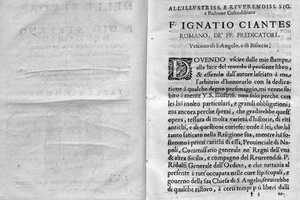 ALL'ILLVSTRISS. E REVERENDISS. SIG.
e Padrone Colendissimo
F. IGNATIO CIANTES
ROMANO, DE' FF. PREDICATORI.
Vescouo di S. Angelo, e di Bisaccia;
DOVENDO vscire dalle mie stampe
alla luce del mondo il presente libro,
& essendo dall'autore lasciato à me
l'arbitrio d'honorarlo con la dedica-
tione à qualche degno personaggio, mi venne su-
bito à mente V.S. Illustriss. non solo perche con
lei hò molto particolari, e grandi obligationi;
mà ancora perche, essendo il libro, se non molto
grande, ripieno di molta varietà d'historie, di riti
antichi, e di questioni curiose; onde è lei, che hà
tanto faticato nella Religione sua, mentre hà so-
stenuti i primi carichi di essa, Prouinciale di Na-
poli, Commissario generale ne' Regni dell'vna
de altra Sicilia, e compagno del Reuerendiss. P.
Ridolfi Generale dell'Ordine, e che tuttauia al
presente è tutt'occupata nelle cure spirituali, e
gouerno della sua Chiesa di S. Angelo, seruirebbe
di qualche ristoro, à certi tempi più liberi dalli